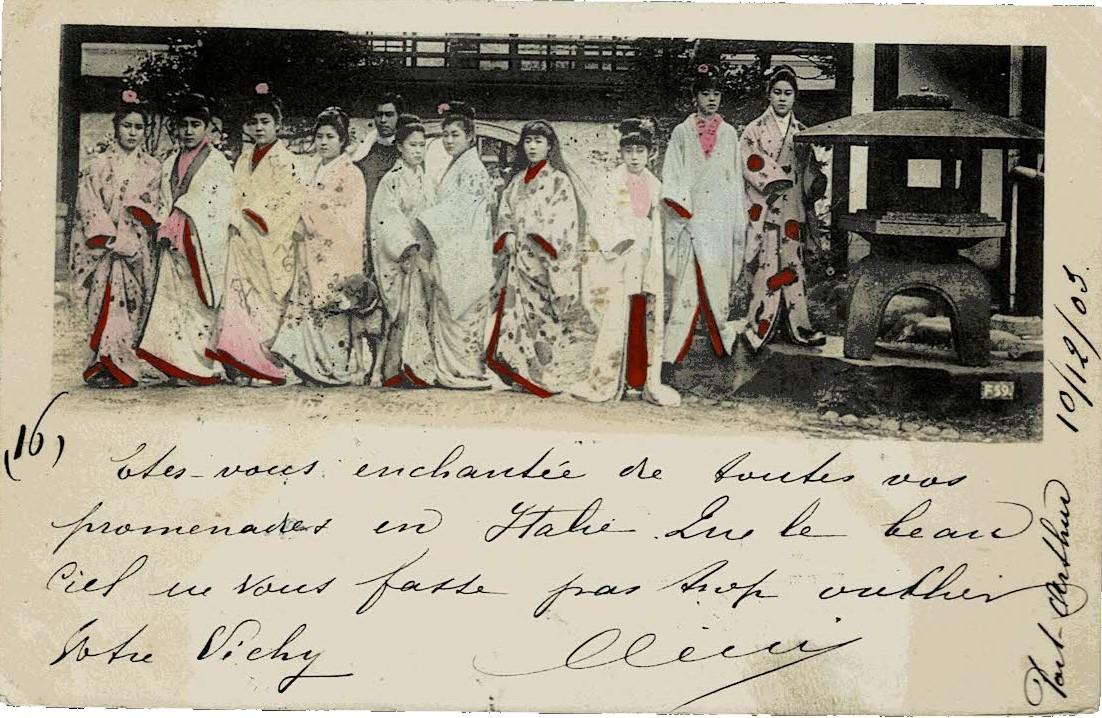 F59.
(16)
Etes-vous enchantée de toutes vos
promenades en Italie. Que le beau
Ciel ne vous fasse pas trop oublier
Votre Vichy
Port-Arthur 10/12/03.